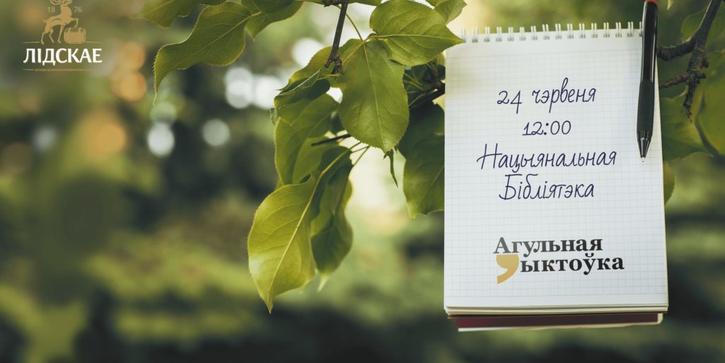 1876
ЛІДСКАЕ
24 чэрвеня
12:00
Нацыянальная
Бібліятэка
Агульная
Дыктоўка